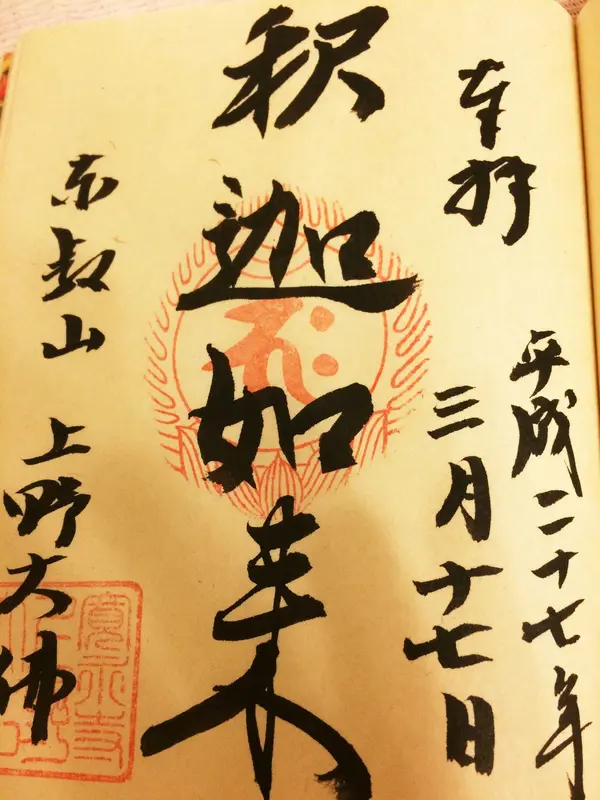 奉拝
平成二十七年
三月十七日
釈迦如来
東叡山 上野大佛
寛永寺